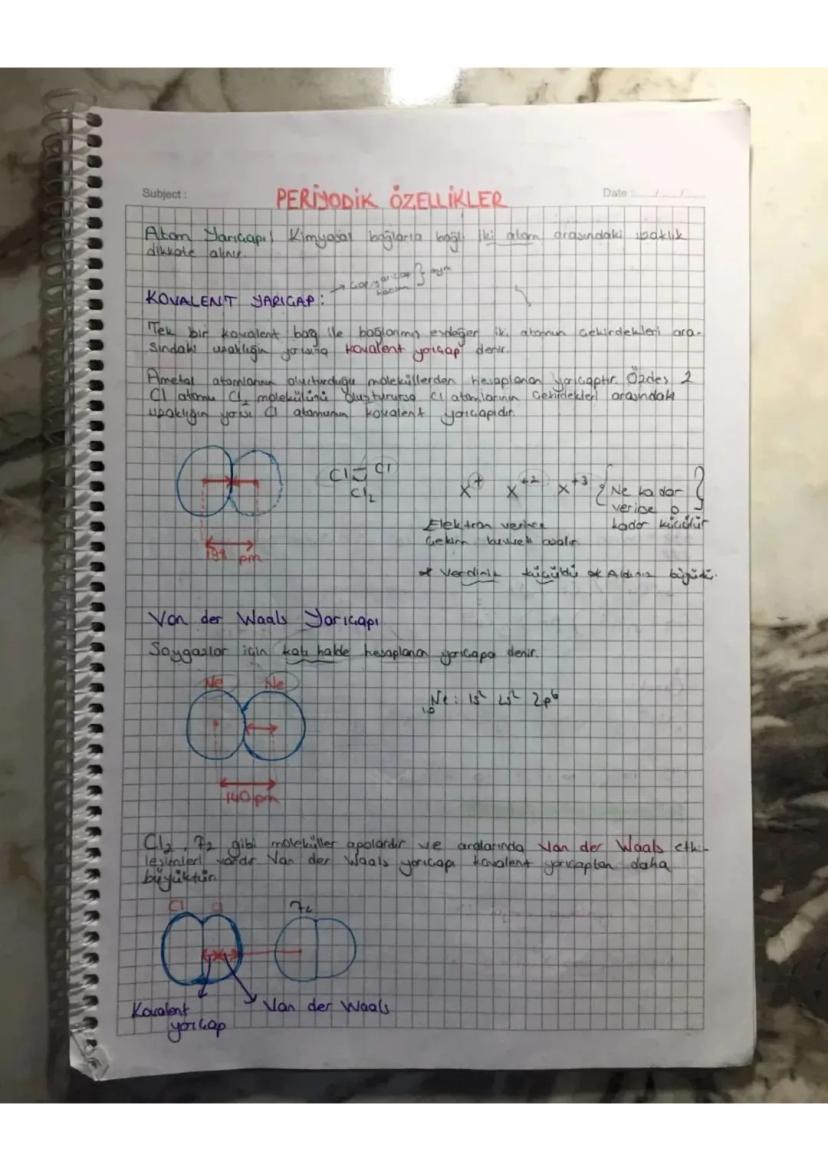 Subject : PERİYODİK ÖZELLİKLER Date : / /
Atom Yarıçapı: Kimyasal bağlarla bağlı iki atom arasındaki uzaklık
dikkate alınır.
KOVALENT YARIÇAP: → çap, yarıçap } aynı
hacim
Tek bir kovalent bağ ile bağlanmış eşdeğer iki atomun çekirdekleri ara-
sındaki uzaklığın yarısına kovalent yarıçap denir.
Ametal atomlarının oluşturduğu moleküllerden hesaplanan yarıçaptır. Özdeş 2
Cl atomu Cl₂ molekülünü oluşturursa Cl atomlarının çekirdekleri arasındaki
uzaklığın yarısı Cl atomunun kovalent yarıçapıdır.
Cl Cl
Cl₂
X⁺ X⁺² X⁺³ { Ne kadar
verirse o
kadar küçülür }
Elektron verince
çekim
pm
* Verdiniz küçüldü * Aldınız büyüdü.
Van der Waals Yarıçapı
Soygazlar için katı halde hesaplanan yarıçapa denir.
Ne Ne
₁₀Ne : 1s² 2s² 2p⁶
140 pm
Cl₂, F₂ gibi moleküller apolardır ve aralarında Van der Waals etki-
leşimleri vardır Van der Waals yarıçapı kovalent yarıçaptan daha
büyüktür.
Cl Cl F₂
Kovalent
yarıçap
Van der Waals